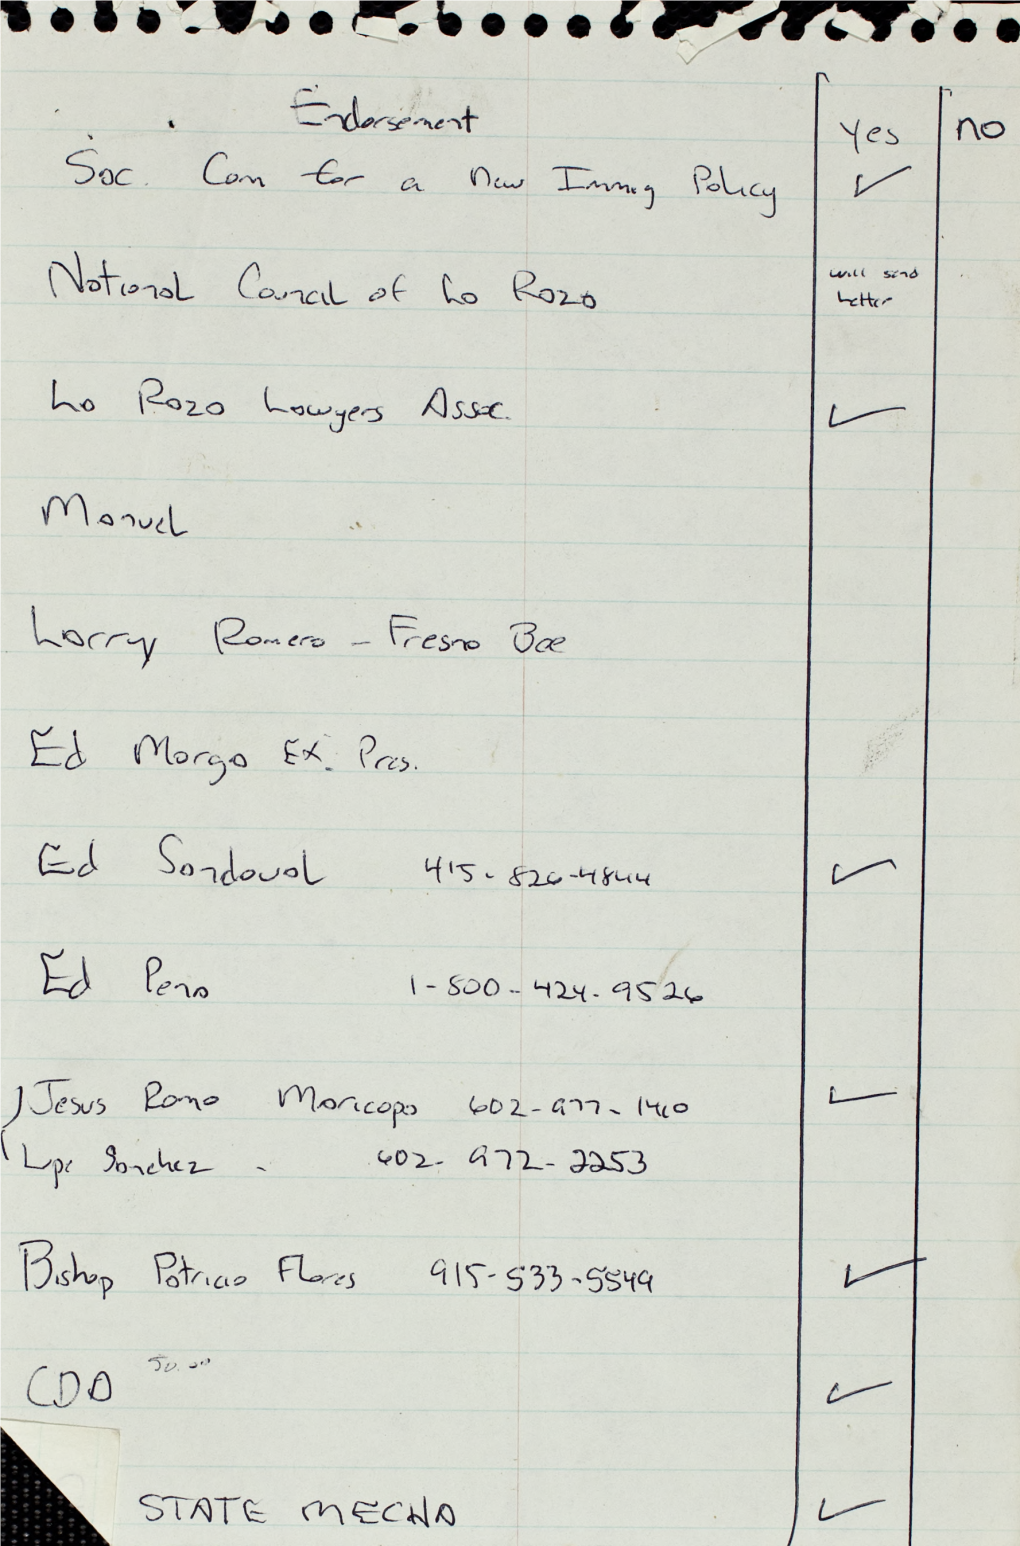 Endorsement yes no
Soc. Com for a New Immig Policy
National Council of La Raza will send
letter
La Raza Lawyers Assoc.
Manuel
Larry Romero - Fresno Bee
Ed Morga Ex. Pres.
Ed Sandoval 415-826-4844
Ed Pena 1-800-424-9526
Jesus Romo Maricopa 602-977-1410
Lupe Sanchez - 602-972-2253
Bishop Patricio Flores 915-533-5549
CDA 50.00
STATE MECHA